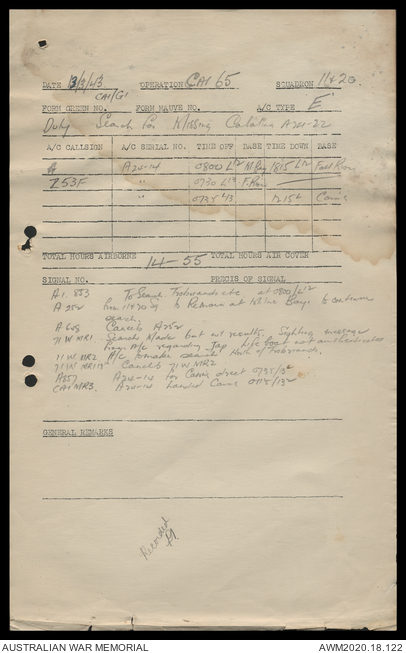 DATE 13/3/43 OPERATION CA1 65 SQUADRON 11&20
CA1/G1
FORM GREEN NO. FORM MAUVE NO. A/C TYPE E
Duty Search for Missing Catalina A24-22
A/C CALLSIGN A/C SERIAL NO. TIME OFF BASE TIME DOWN BASE
A24-14 0800 L/12 M. Bay 1815 L/12
Z53F " 0730 L/13 F. Riv
" 0735 L/3 1215L Cairns
TOTAL HOURS AIRBORNE 14-55 TOTAL HOURS AIR COVER
SIGNAL NO. PRECIS OF SIGNAL
A1. 853 To Search Trobriands etc at 0800/L12
A 252 for 11 & 20 Sq to Remain at Milne Bay to continue
search.
A 608 Cancels A252
11 W MR1 Search Made but no results. Sighting message
from A/c regarding Jap Life boat not authenticated
11 W. MR2 A/C to make search North of Trobriands.
Cancels 11 W MR2
A857 A24-14 for Cairns direct 0735/13L
CA1 MR3. A24-14 landed Cairns
GENERAL REMARKS
Recorded
AUSTRALIAN WAR MEMORIAL AWM2020.18.122